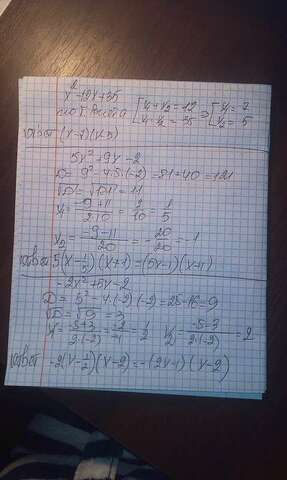 x² - 12x + 35
по т. Виета [x₁ + x₂ = 12 => [x₁ = 7
x₁·x₂ = 35 x₂ = 5
ответ (x-7)(x-5)
5x² + 9x - 2
D = 9² - 4·5·(-2) = 81 + 40 = 121
√D = √121 = 11
x₁ = (-9+11)/(2·10) = 2/10 = 1/5
x₂ = (-9-11)/20 = -20/20 = -1
ответ 5(x - 1/5)(x+1) = (5x-1)(x+1)
-2x² + 5x - 2
D = 5² - 4·(-2)·(-2) = 25 - 16 = 9
√D = √9 = 3
x₁ = (-5+3)/(2·(-2)) = -2/-4 = 1/2 x₂ = (-5-3)/(2·(-2)) = 2
ответ -2(x - 1/2)(x-2) = -(2x-1)(x-2)